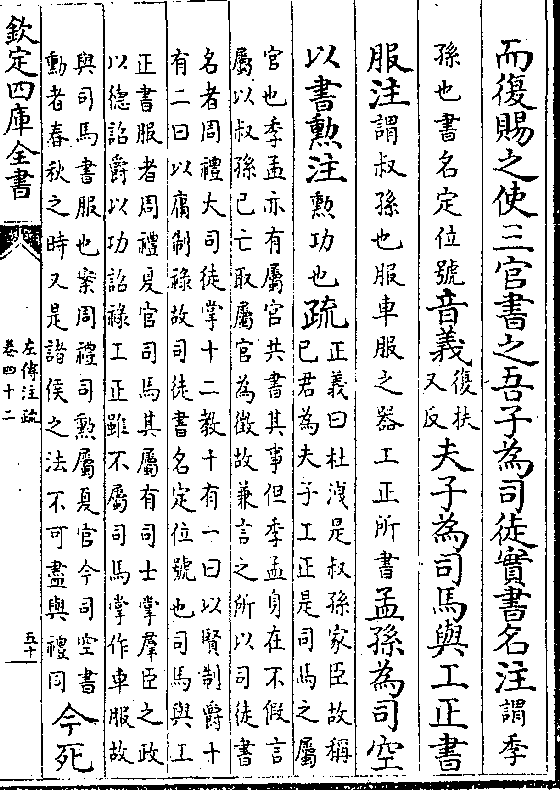 而復賜之使三官書之吾子為司徒實書名注謂季
孫也書名定位號音義復扶
又反夫子為司馬與工正書
服注謂叔孫也服車服之器工正所書孟孫為司空
以書勲注勲功也疏正義曰杜洩是叔孫家臣故稱
已君為夫子工正是司馬之屬
官也季孟亦有屬官共書其事但季孟身在不假言
屬以叔孫已亡取屬官為徴故兼言之所以司徒書
名者周禮大司徒掌十二教十有一曰以賢制爵十
有二曰以庸制禄故司徒書名定位號也司馬與工
正書服者周禮夏官司馬其屬有司士掌羣臣之政
以徳詔爵以功詔禄工正雖不屬司馬掌作車服故
與司馬書服也案周禮司勲屬夏官今司空書
勲者春秋之時又是諸侯之法不可盡與禮同今死
欽定四庫全書
左傳注疏
卷四十二
五十